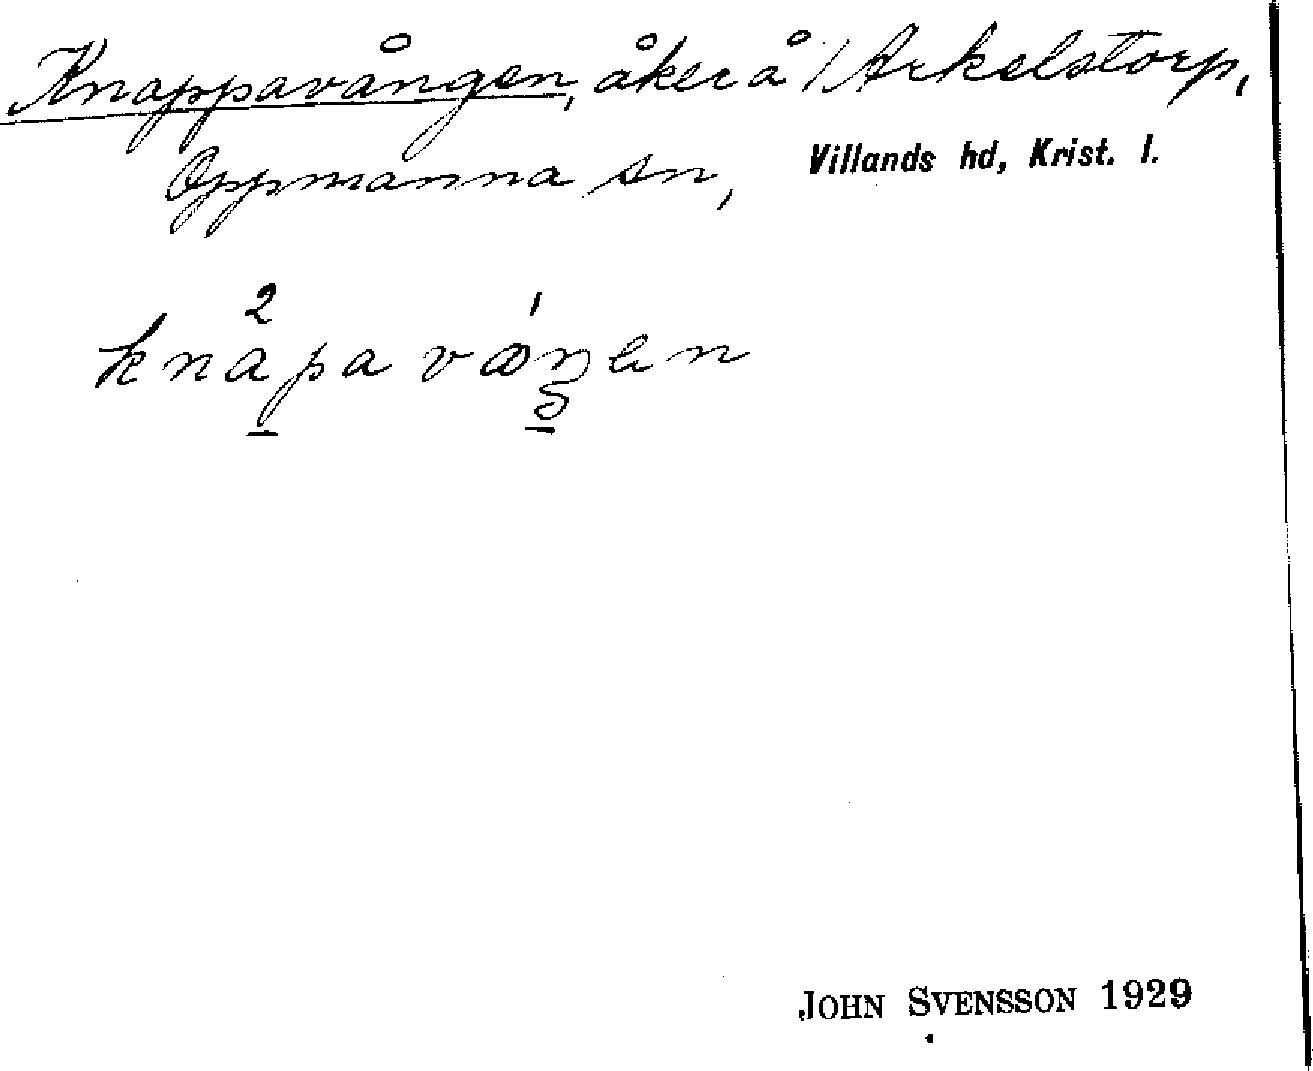 Knappavången, åker å 1/ Arkelstorp,
Oppmanna sn, Villands hd, Krist. l.
JOHN SVENSSON 1929